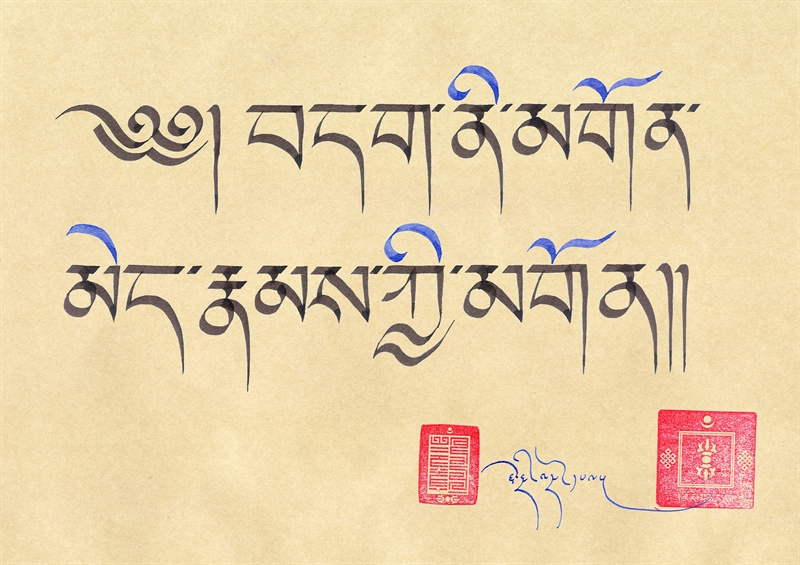 ༄༅། བདག་ནི་མགོན་
མེད་རྣམས་ཀྱི་མགོན།།